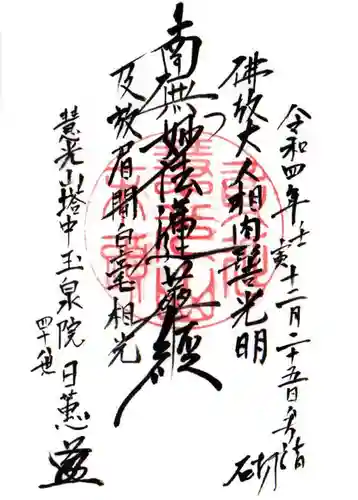 令和四年壬寅十二月二十五日参詣 砌
佛放大人相肉髻光明
南無妙法蓮華経
及放眉間白毫相光
慧光山塔中玉泉院 日薫
四十九